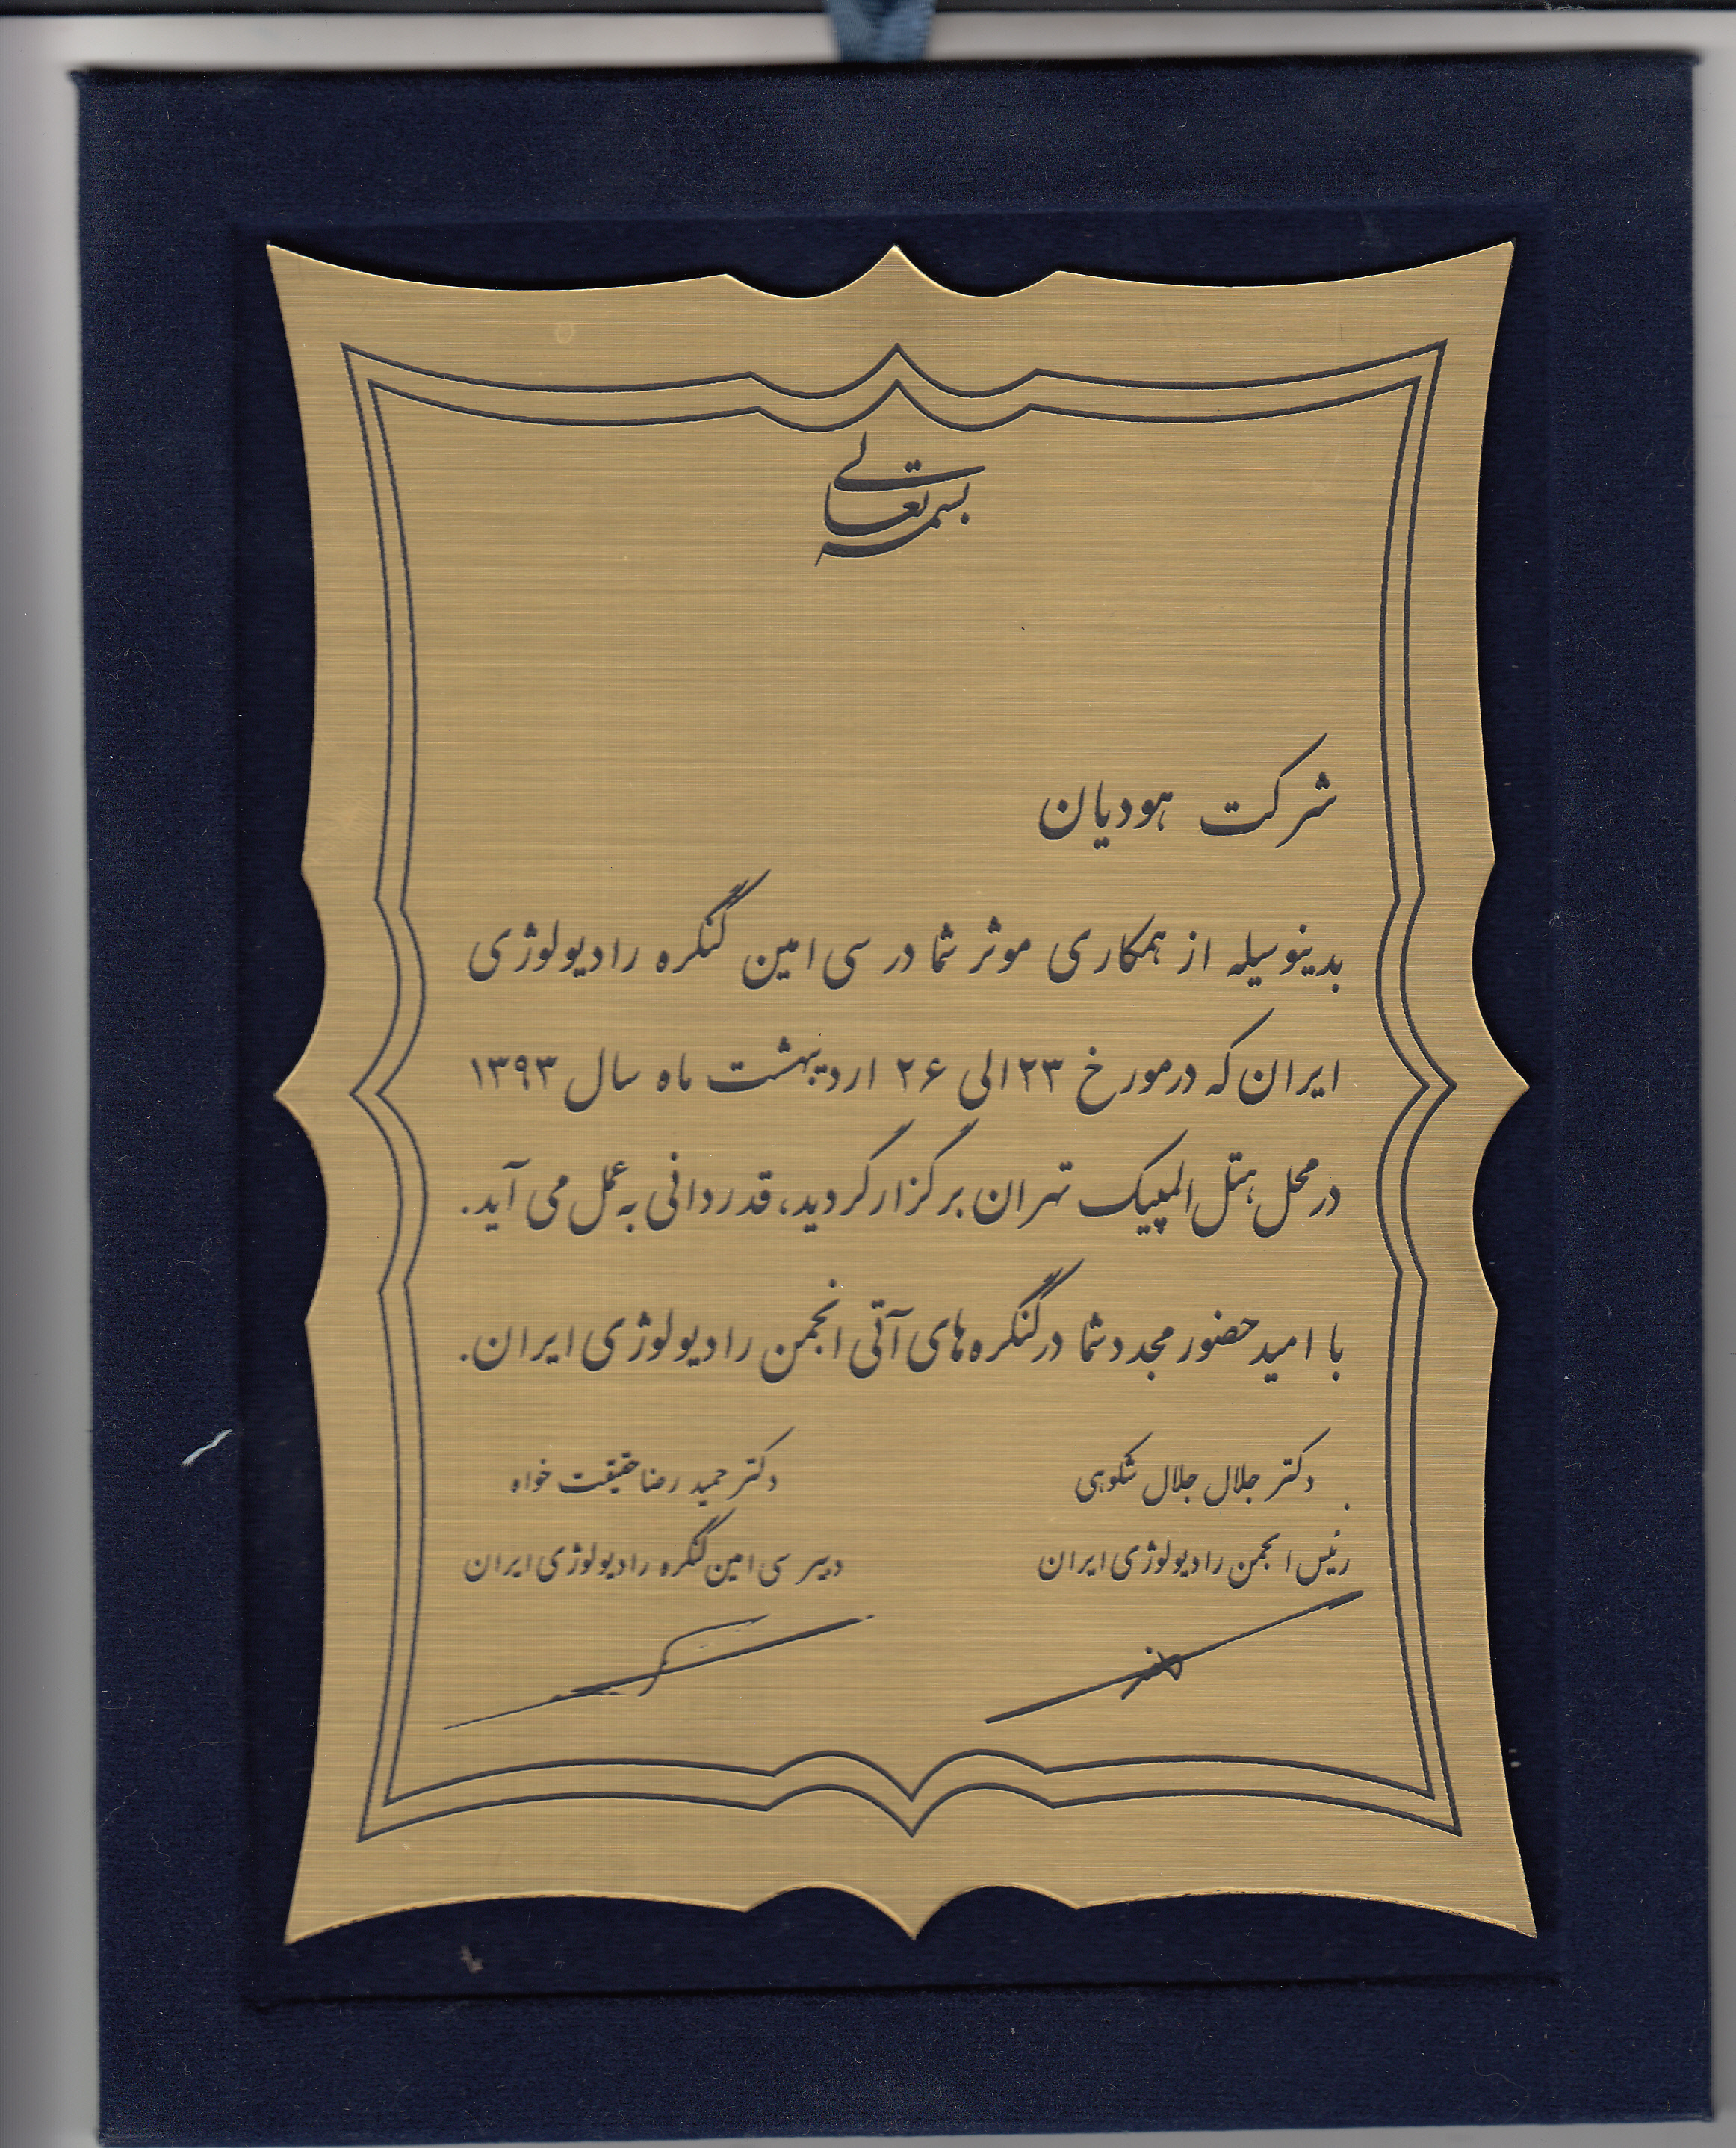 بسمه تعالی
شرکت هودیان
بدینوسیله از همکاری موثر شما در سی امین کنگره رادیولوژی
ایران که در مورخ ۲۳ الی ۲۶ اردیبهشت ماه سال ۱۳۹۳
در محل هتل المپیک تهران برگزار گردید، قدردانی به عمل می آید.
با امید حضور مجدد شما در کنگره های آتی انجمن رادیولوژی ایران.
دکتر جلال جلال شکوهی
دکتر حمید رضا حقیقت خواه
رئیس انجمن رادیولوژی ایران
دبیر سی امین کنگره رادیولوژی ایران